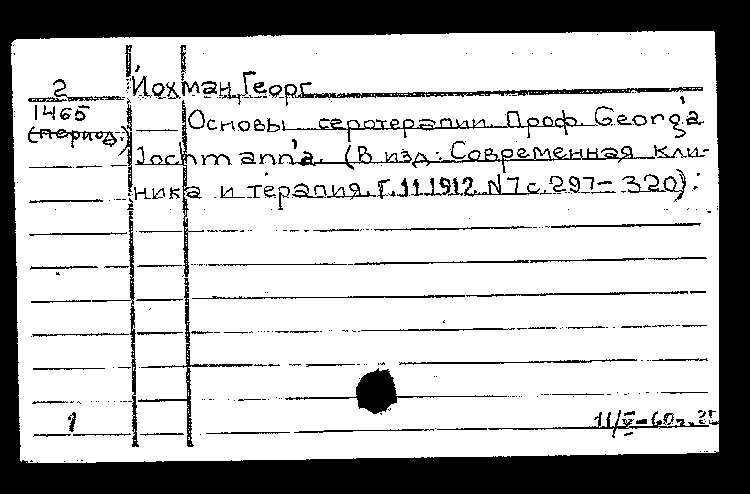 2 Йохман, Георг
1465 Основы серотерапии. Проф. Georg'a
(период.) Jochmann'a. (В изд: Современная кли-
ника и терапия, Г. 11. 1912. N7 с. 297-320):
1 11/V-60г.